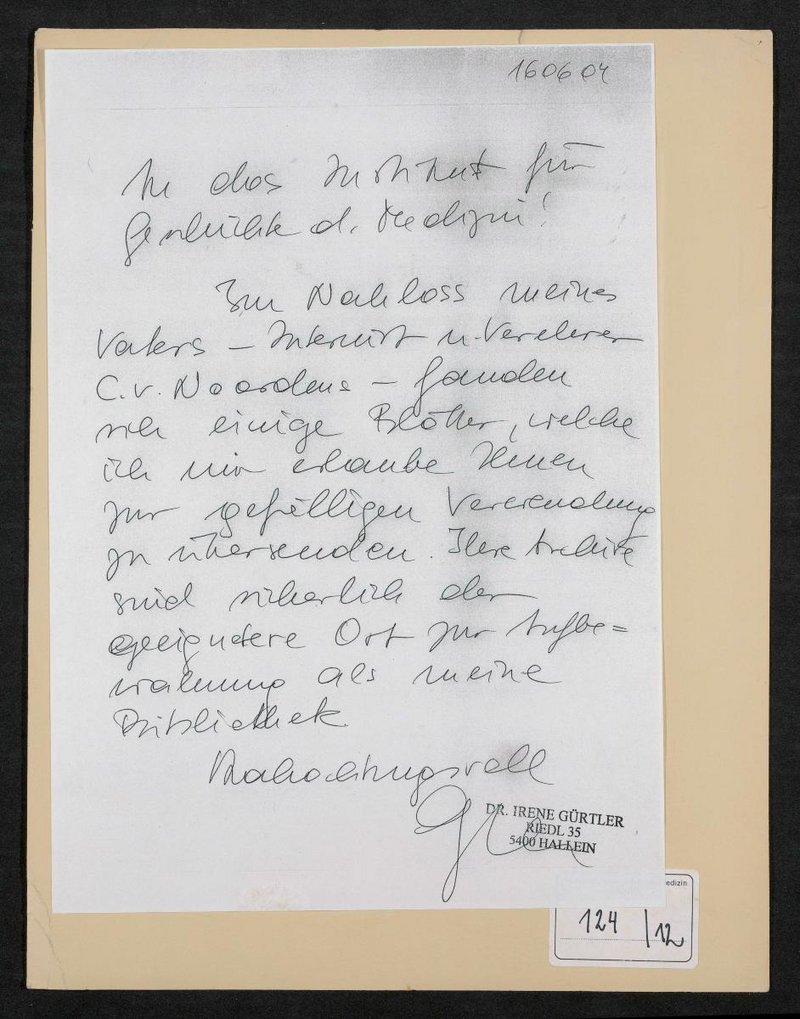 160604
An das Institut für
Geschichte d. Medizin!
Im Nachlass meines
Vaters – Internist u. Verehrer
C. v. Noordens – fanden
sich einige Blätter, welche
ich mir erlaube Ihnen
zur gefälligen Verwendung
zu übersenden. Ihre Archive
sind sicherlich der
geeignetere Ort zur Aufbe=
wahrung als meine
Bibliothek
Hochachtungsvoll
DR. IRENE GÜRTLER
RIEDL 35
5400 HALLEIN
edizin
124 / 12